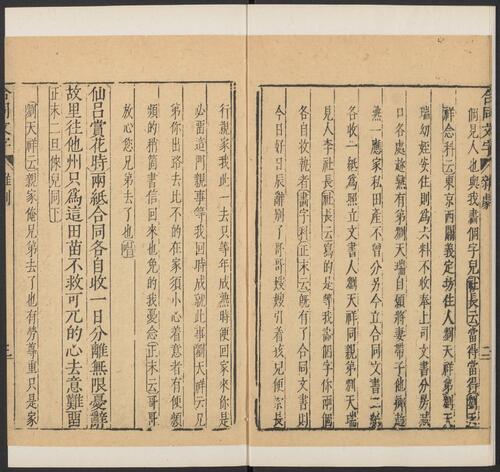 合同文字 雜劇 二
個見人也與我畫個字兒社長云當得當得劉天
祥念科云東京西關義定坊住人劉天祥弟劉天
瑞幼姪安住則為六料不收奉上司文書分房減
口各處趂熟有弟劉天瑞自願將妻帶子他鄉趂
熟一應家私田產不曾分另今立合同文書二紙
各收一紙為照立文書人劉天祥同親弟劉天瑞
見人李社長社長云寫的是等我畫個字你兩個
各自收執者畫字科正末云既有了合同文書則
今日好日辰辭別了哥哥嫂嫂引着孩兒便索長
行親家我此一去只等年成熟時便回家來你是
必留這門親事等我回時成就此事劉天祥云兄
弟你出路去比不的在家須小心着意者有便頻
頻的稍箇書信回來也免的我憂念正末云哥哥
放心您兄弟去了也唱
仙呂賞花時兩紙合同各自收一日分離無限憂辭
故里往他州只為這田苗不救可兀的心去意難留
正末二旦倈兒同下
劉天祥云親家俺兄弟去了也有勞尊重只是家
合同文字 雜劇 三